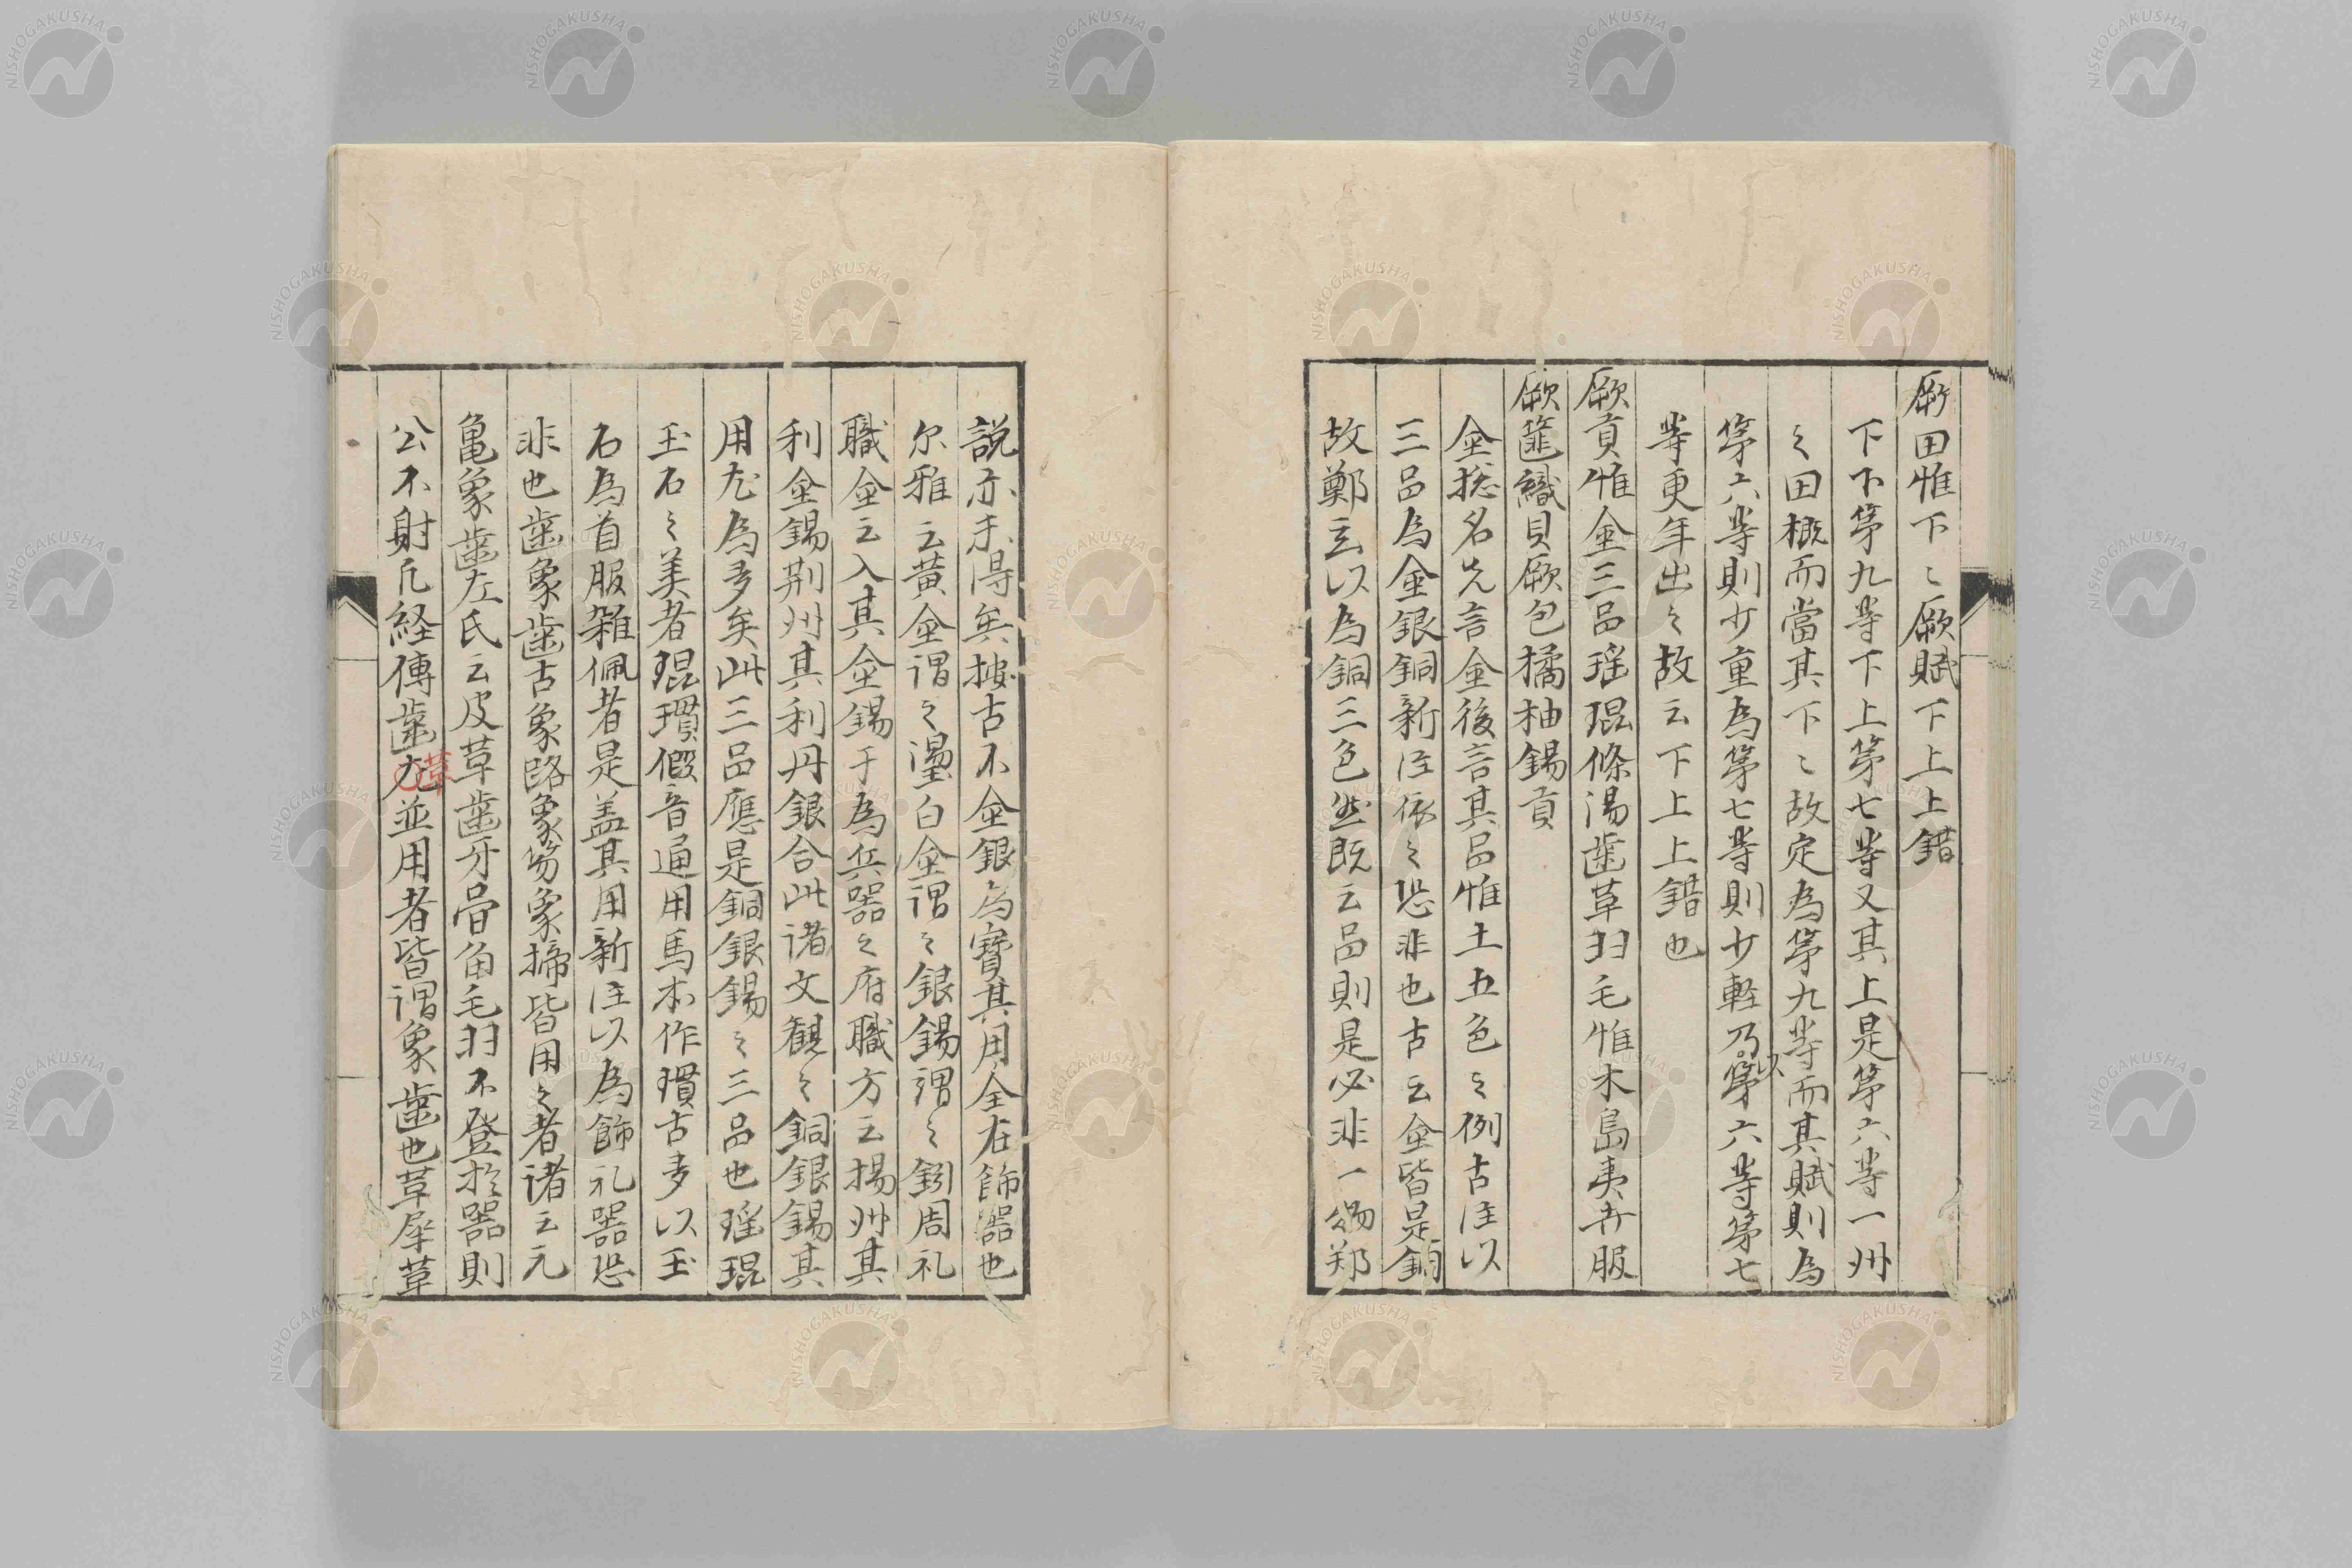 厥田惟下〻厥賦下上上錯
下下第九等下上第七等又其上是第六等一州
之田概而當其下〻故定為第九等而其賦則為
第六等則少重為第七等則少軽乃以第六等第七
等更年出之故云下上上錯也
厥貢惟金三品瑶琨條湯歯革羽毛惟木島夷卉服
厥篚織貝厥包橘柚錫貢
金捴名先言金後言其品惟土五色之例古注以
三品為金銀銅新注依之恐非也古云金皆是銅
故鄭玄以為銅三色然既云品則是必非一物鄭
説亦未得矣按古不金銀為寶其用全在飾器也
尔雅云黄金謂之璗白金謂之銀錫謂之鈏周礼
職金云入其金錫于為兵器之府職方云揚州其
利金錫荊州其利丹銀合此諸文観之銅銀錫其
用尤為多矣此三品應是銅銀錫之三品也瑶琨
玉石之美者琨瓘假音通用馬本作瓘古多以玉
石為首服雑佩者是盖其用新注以為飾礼器恐
非也歯象歯古象路象笏象揥皆用之者諸云元
亀象歯左氏云皮革歯牙骨角毛羽不登於器則
公不射凡経傳歯尤革並用者皆謂象歯也革犀革
NISHOGAKUSHA